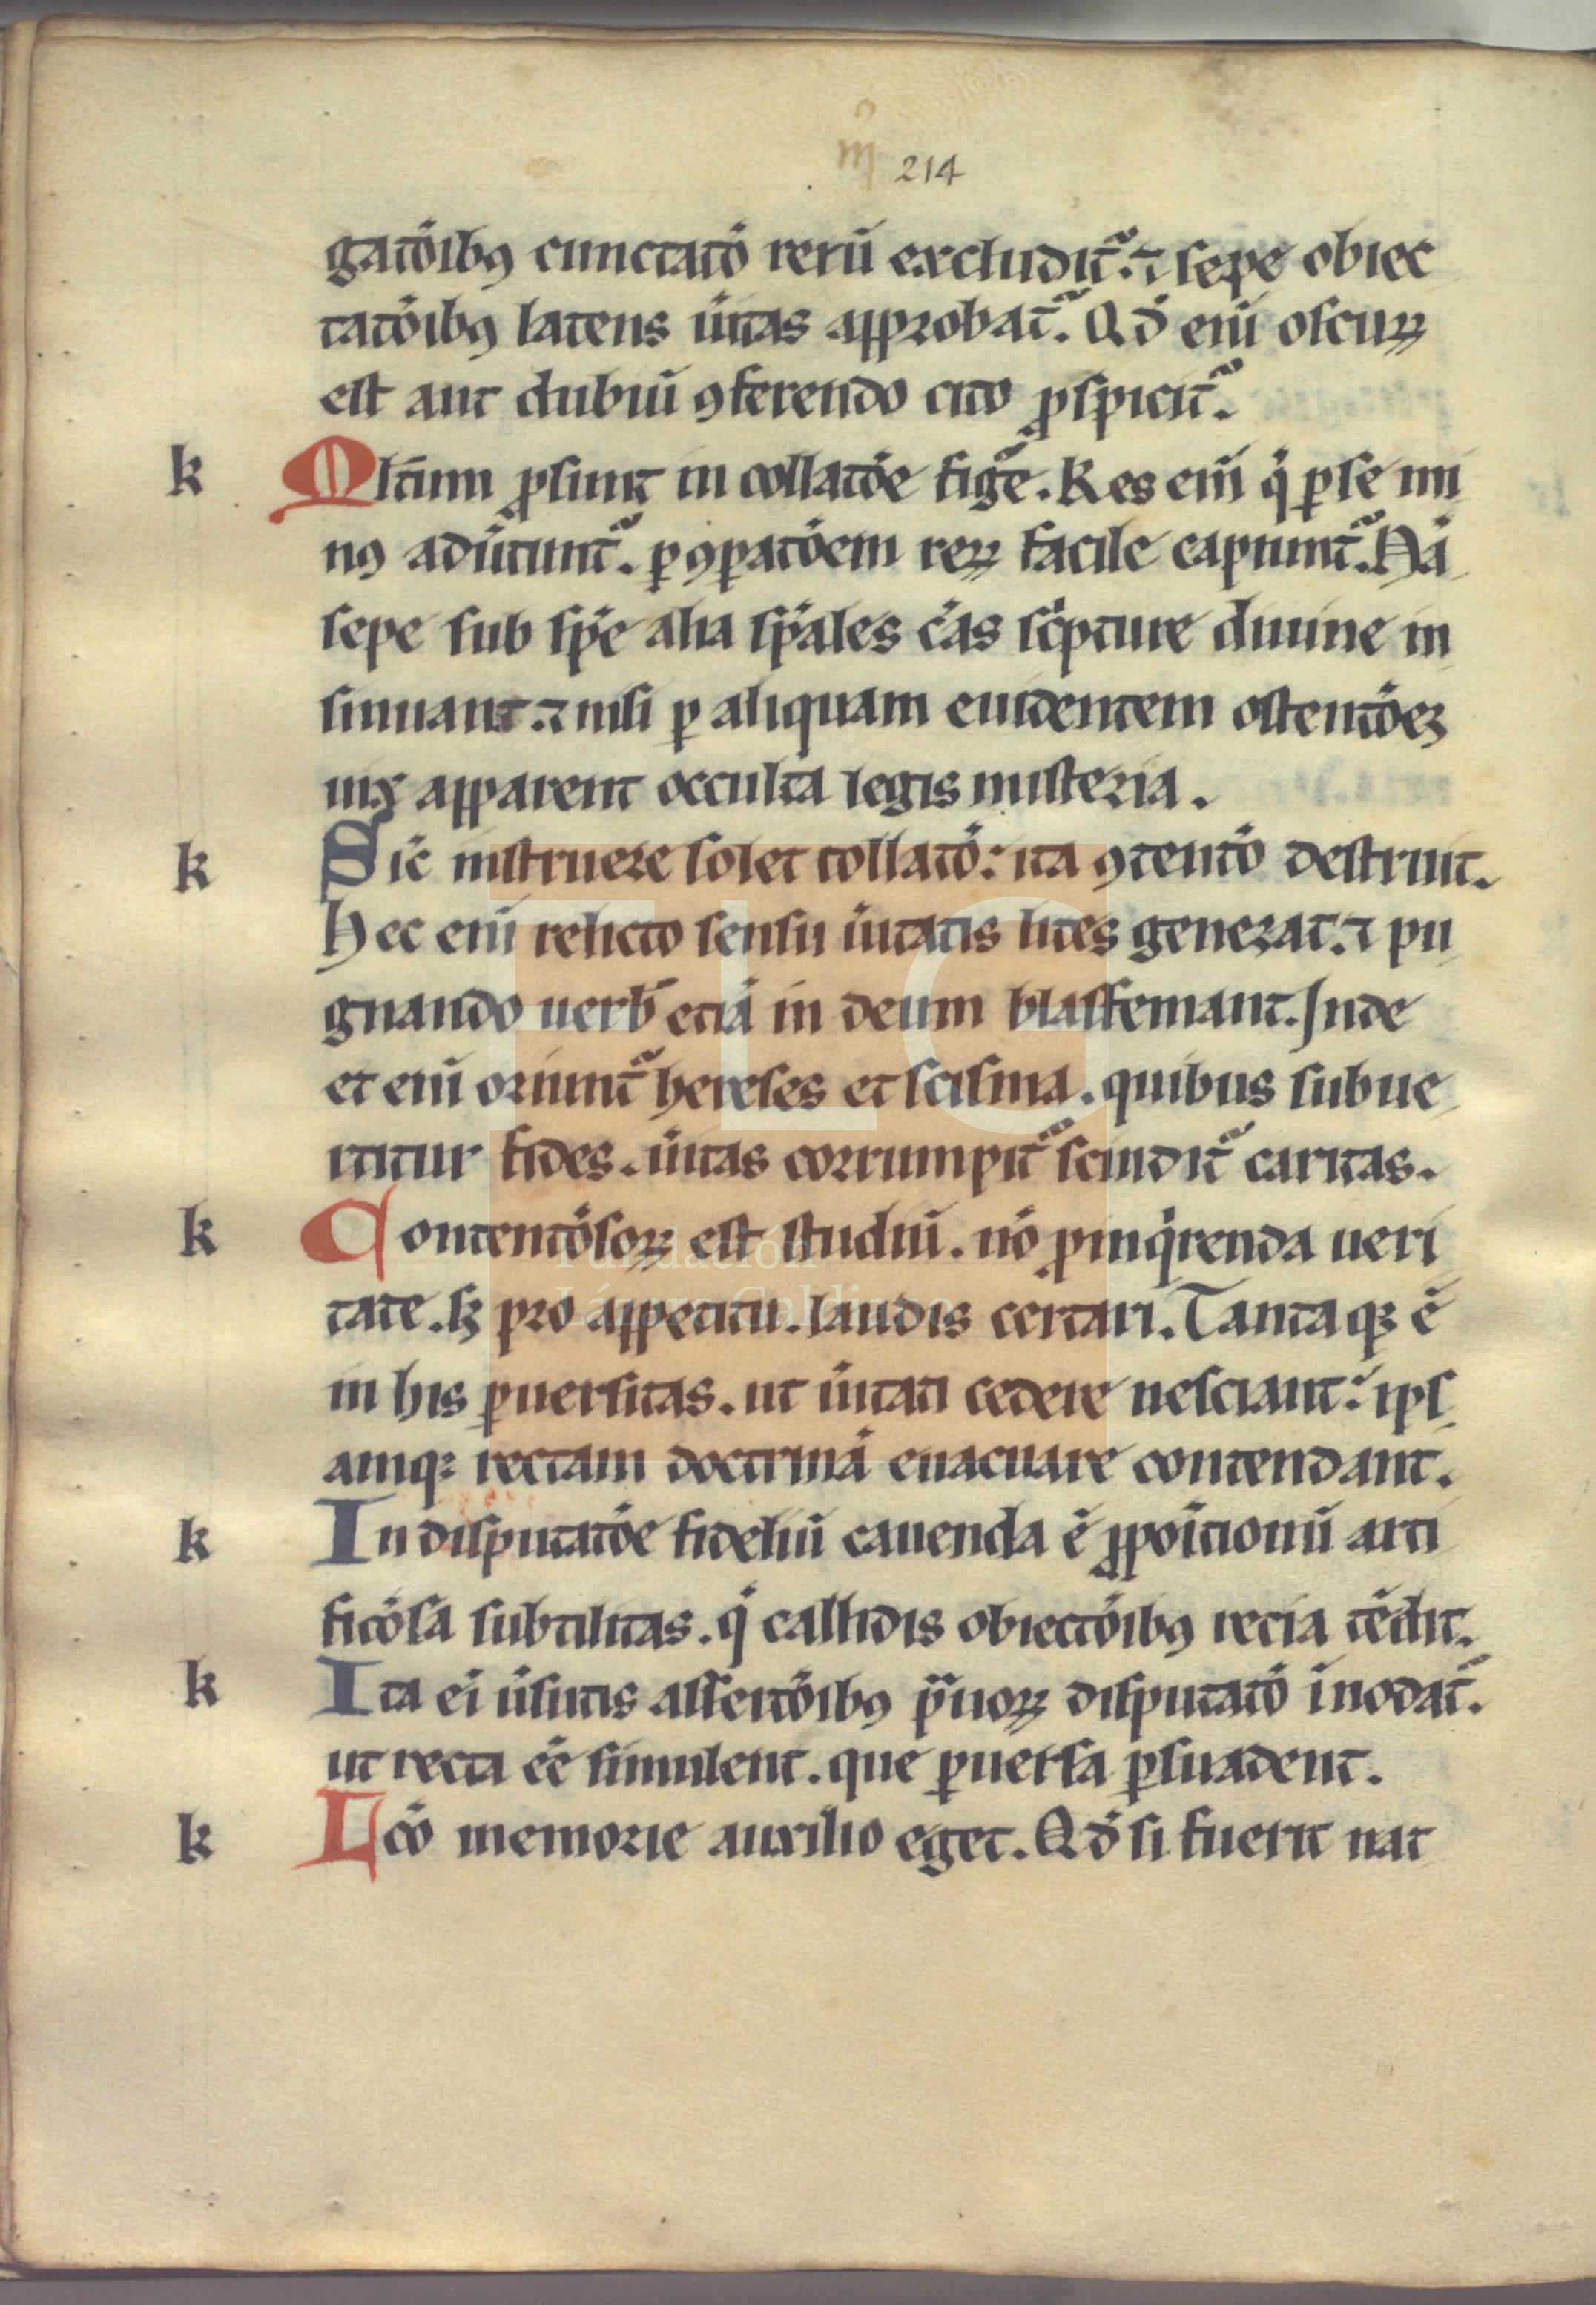 214
gatōibꝰ cunctatō rerū excludit᷑. ⁊ sepe obiec
tatōibꝰ latens ũitas approbat᷑. Qđ eni̅ oscuꝝ
est aut dubiū ꝯferendo cito ꝑspicit᷑.
k Mltum ꝓsunt in collatōe figᷓe. Res eni̅ q̇ ꝑ se mi
nꝰ aduͥtunt᷑. ꝑ ꝯꝑatōem reꝝ facile capiunt᷑. Nā
sepe sub sp̄e alia sp̄ales cās sċpture diuine in
sinuant. ⁊ nisi ꝑ aliquam euidentem ostentōeꝫ
uix apparent occulta legis misteria.
k Sic̄ instruere solet collatō: ita ꝯtentō destruit.
Hec eni̅ relicto sensu ũitatis lites generat. ⁊ pu
gnando uerb̄ etiā in deum blasfemant. Inde
et eni̅ oriunt᷑ hereses et scisma. quibus subue
rtitur fides. ũitas corrumpit᷑ scindit᷑ caritas.
k Contentōsoꝝ est studiū. nō ꝓ inq̇renda ueri
tate. sꝫ pro appetitu. laudis certari. Tanta qꝫ ē
in his ꝑuersitas. ut ũitati cedere nesciant: ips
amqꝫ rectam doctrinā euacuare contendant.
k In disputatōe fideliū cauenda ē ꝓpoītionū arti
ficōsa subtilitas. q̄ callidis obiectōibꝰ recia tēdit.
k Ita ei̅ ũsutis assertōibꝰ p̄uoꝝ disputatō īnodat᷑.
ut recta eē simulent. que ꝑuersa ꝑsuadent.
k Lcō memorie auxilio eget. Qđ si fuerit nat
Fundación
Lázaro Galdiano
FLG